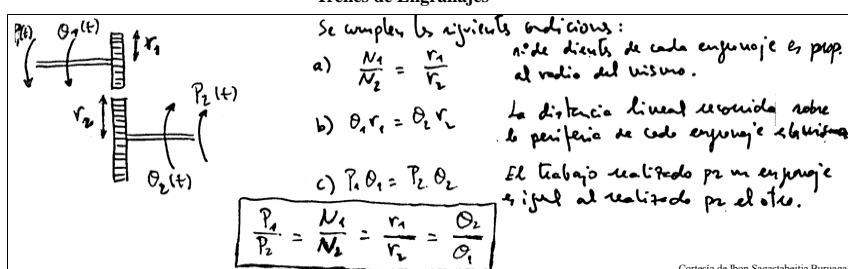 Trenes de Engranajes
P₁(t) θ₁(t) r₁
r₂ P₂(t)
θ₂(t)
Se cumplen los siguientes condicions:
a) N₁/N₂ = r₁/r₂ nº de dientes de cada engranaje es prop. al radio del mismo.
b) θ₁ r₁ = θ₂ r₂ La distancia lineal recorrida sobre la periferia de cada engranaje es la misma
c) P₁ θ₁ = P₂ θ₂ El trabajo realizado por un engranaje es igual al realizado por el otro.
P₁/P₂ = N₁/N₂ = r₁/r₂ = θ₂/θ₁
Cortesía de Ibon Sagastabeitia Buruaga